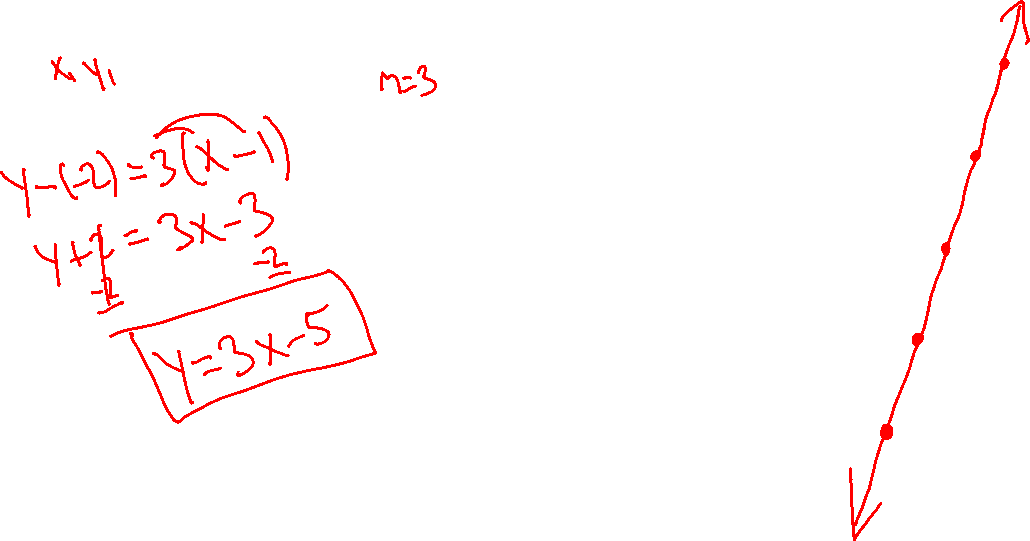 x₁ y₁
m=3
y-(-2)=3(x-1)
y+2=3x-3
-2 -2
y=3x-5